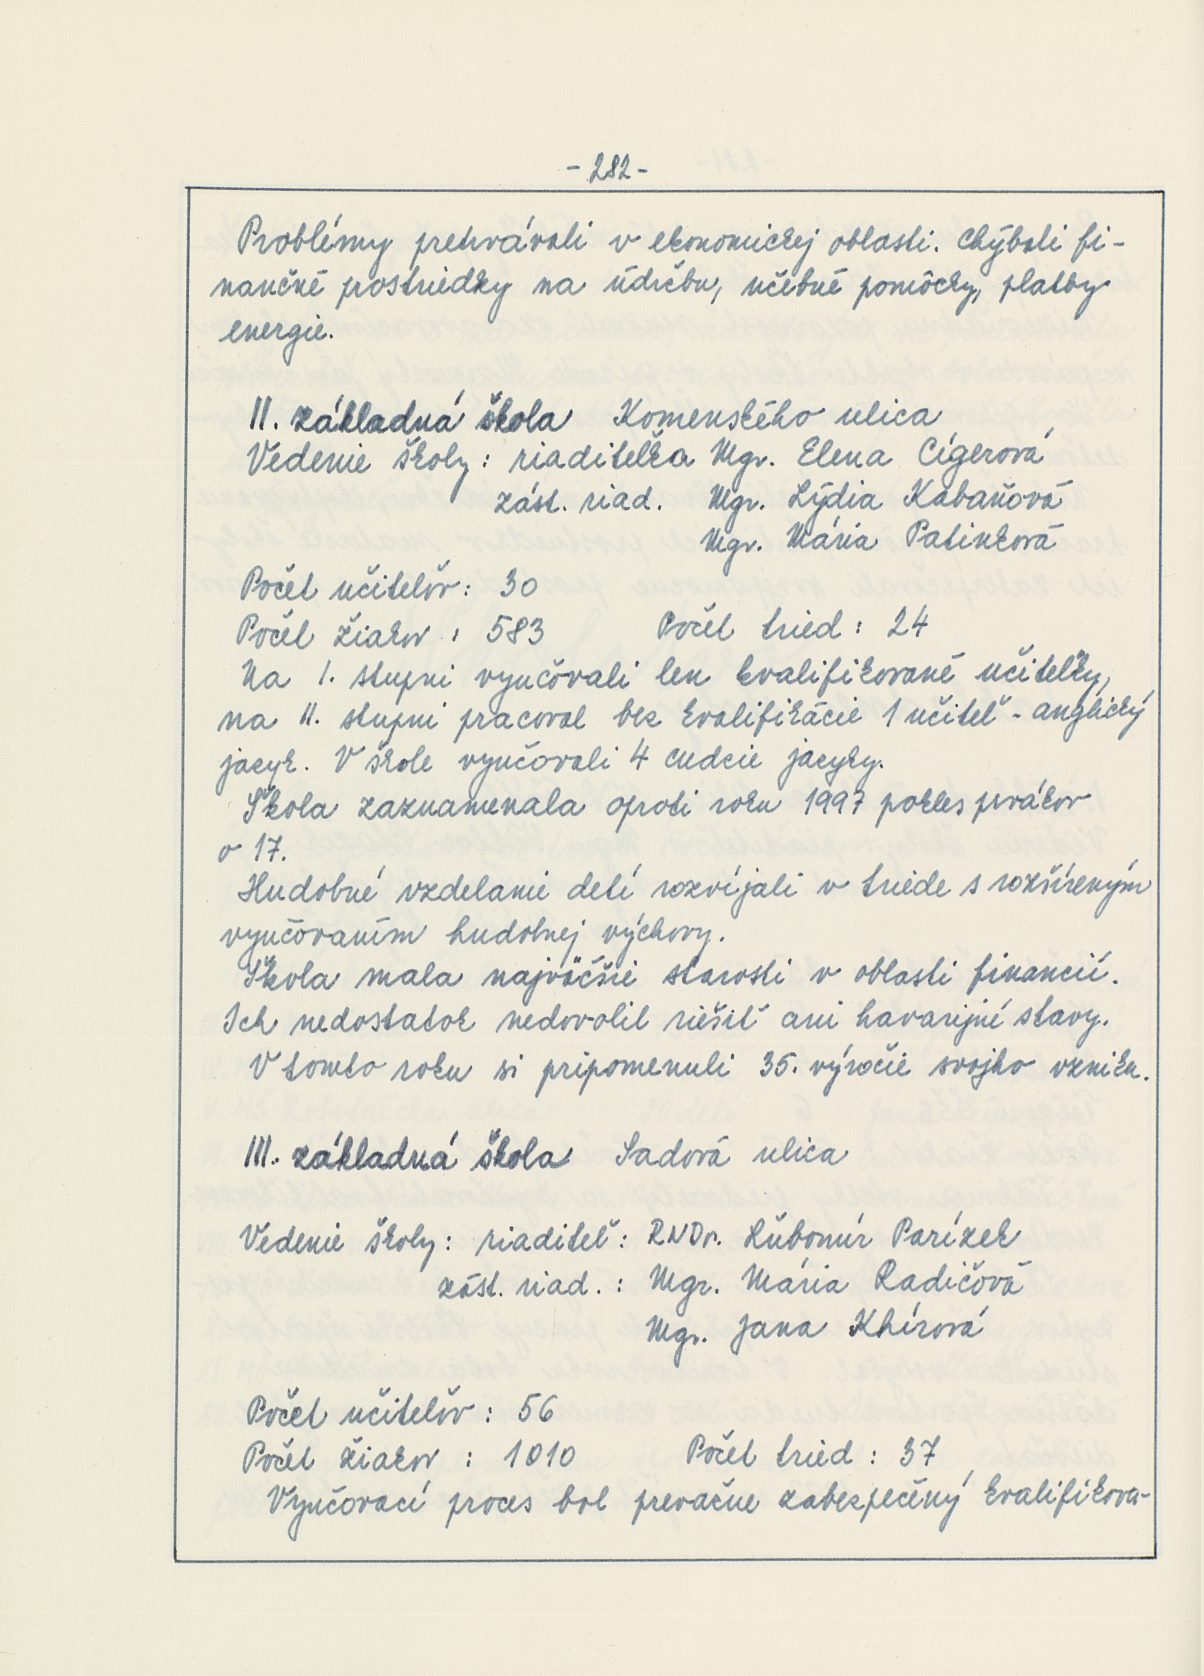 - 282 -
Problémy pretrvávali v ekonomickej oblasti. Chýbali fi-
nančné prostriedky na údržbu, učebné pomôcky, platby
energie.
II. základná škola Komenského ulica
Vedenie školy: riaditeľka Mgr. Elena Cígerová
zást. riad. Mgr. Lýdia Kabaňová
Mgr. Mária Patinková
Počet učiteľov: 30
Počet žiakov : 583 Počet tried : 24
Na I. stupni vyučovali len kvalifikované učiteľky,
na II. stupni pracoval bez kvalifikácie 1 učiteľ - anglický
jazyk. V škole vyučovali 4 cudzie jazyky.
Škola zaznamenala oproti roku 1997 pokles prvákov
o 17.
Hudobné vzdelanie detí rozvíjali v triede s rozšíreným
vyučovaním hudobnej výchovy.
Škola mala najväčšie starosti v oblasti financií.
Ich nedostatok nedovolil riešiť ani havarijné stavy.
V tomto roku si pripomenuli 35. výročie svojho vzniku.
III. základná škola Sadová ulica
Vedenie školy: riaditeľ: RNDr. Ľubomír Parízek
zást. riad. : Mgr. Mária Radičová
Mgr. Jana Khírová
Počet učiteľov : 56
Počet žiakov : 1010 Počet tried : 37
Vyučovací proces bol prevažne zabezpečený kvalifikova-